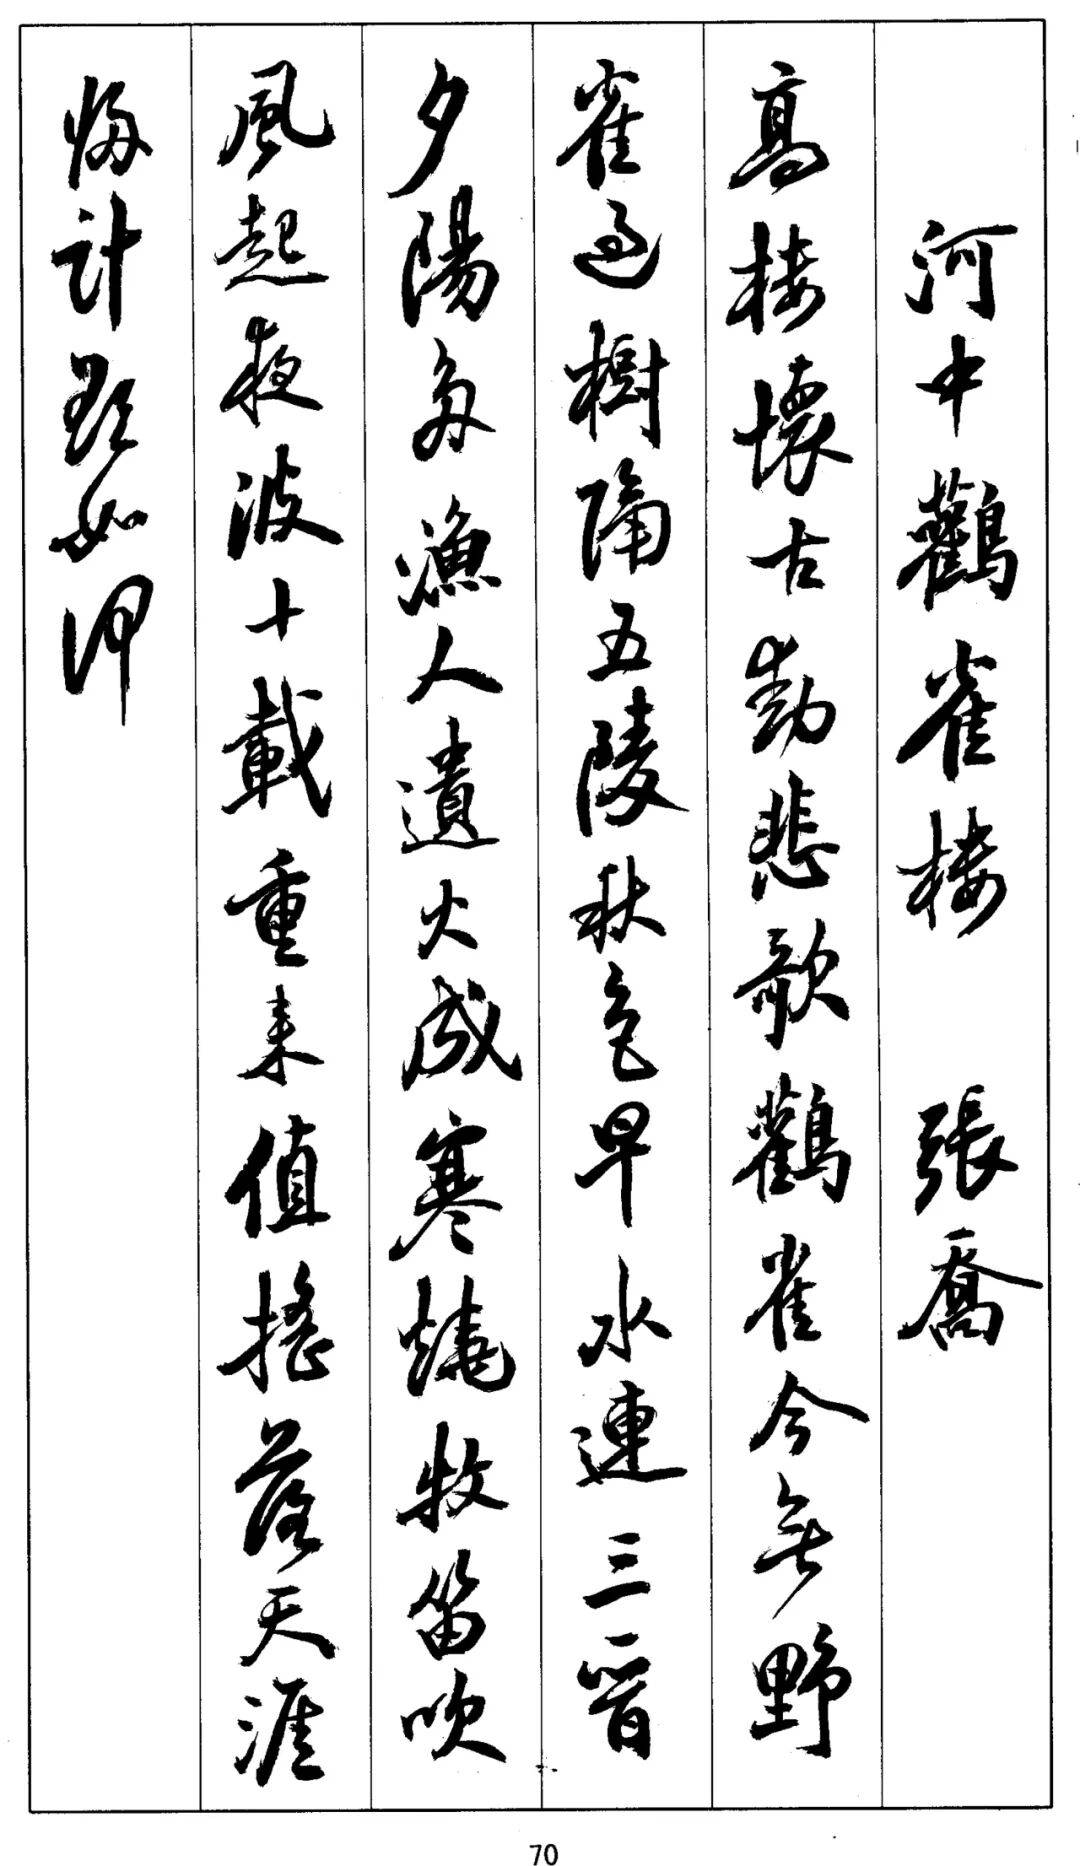 河中鸛雀楼 張喬
高楼懷古動悲歌鸛雀今無野
雀過樹隔五陵秋色早水連三晉
夕陽多漁人遺火成寒燒牧笛吹
風起夜波十載重来值搖落天涯
歸計欲如何
70